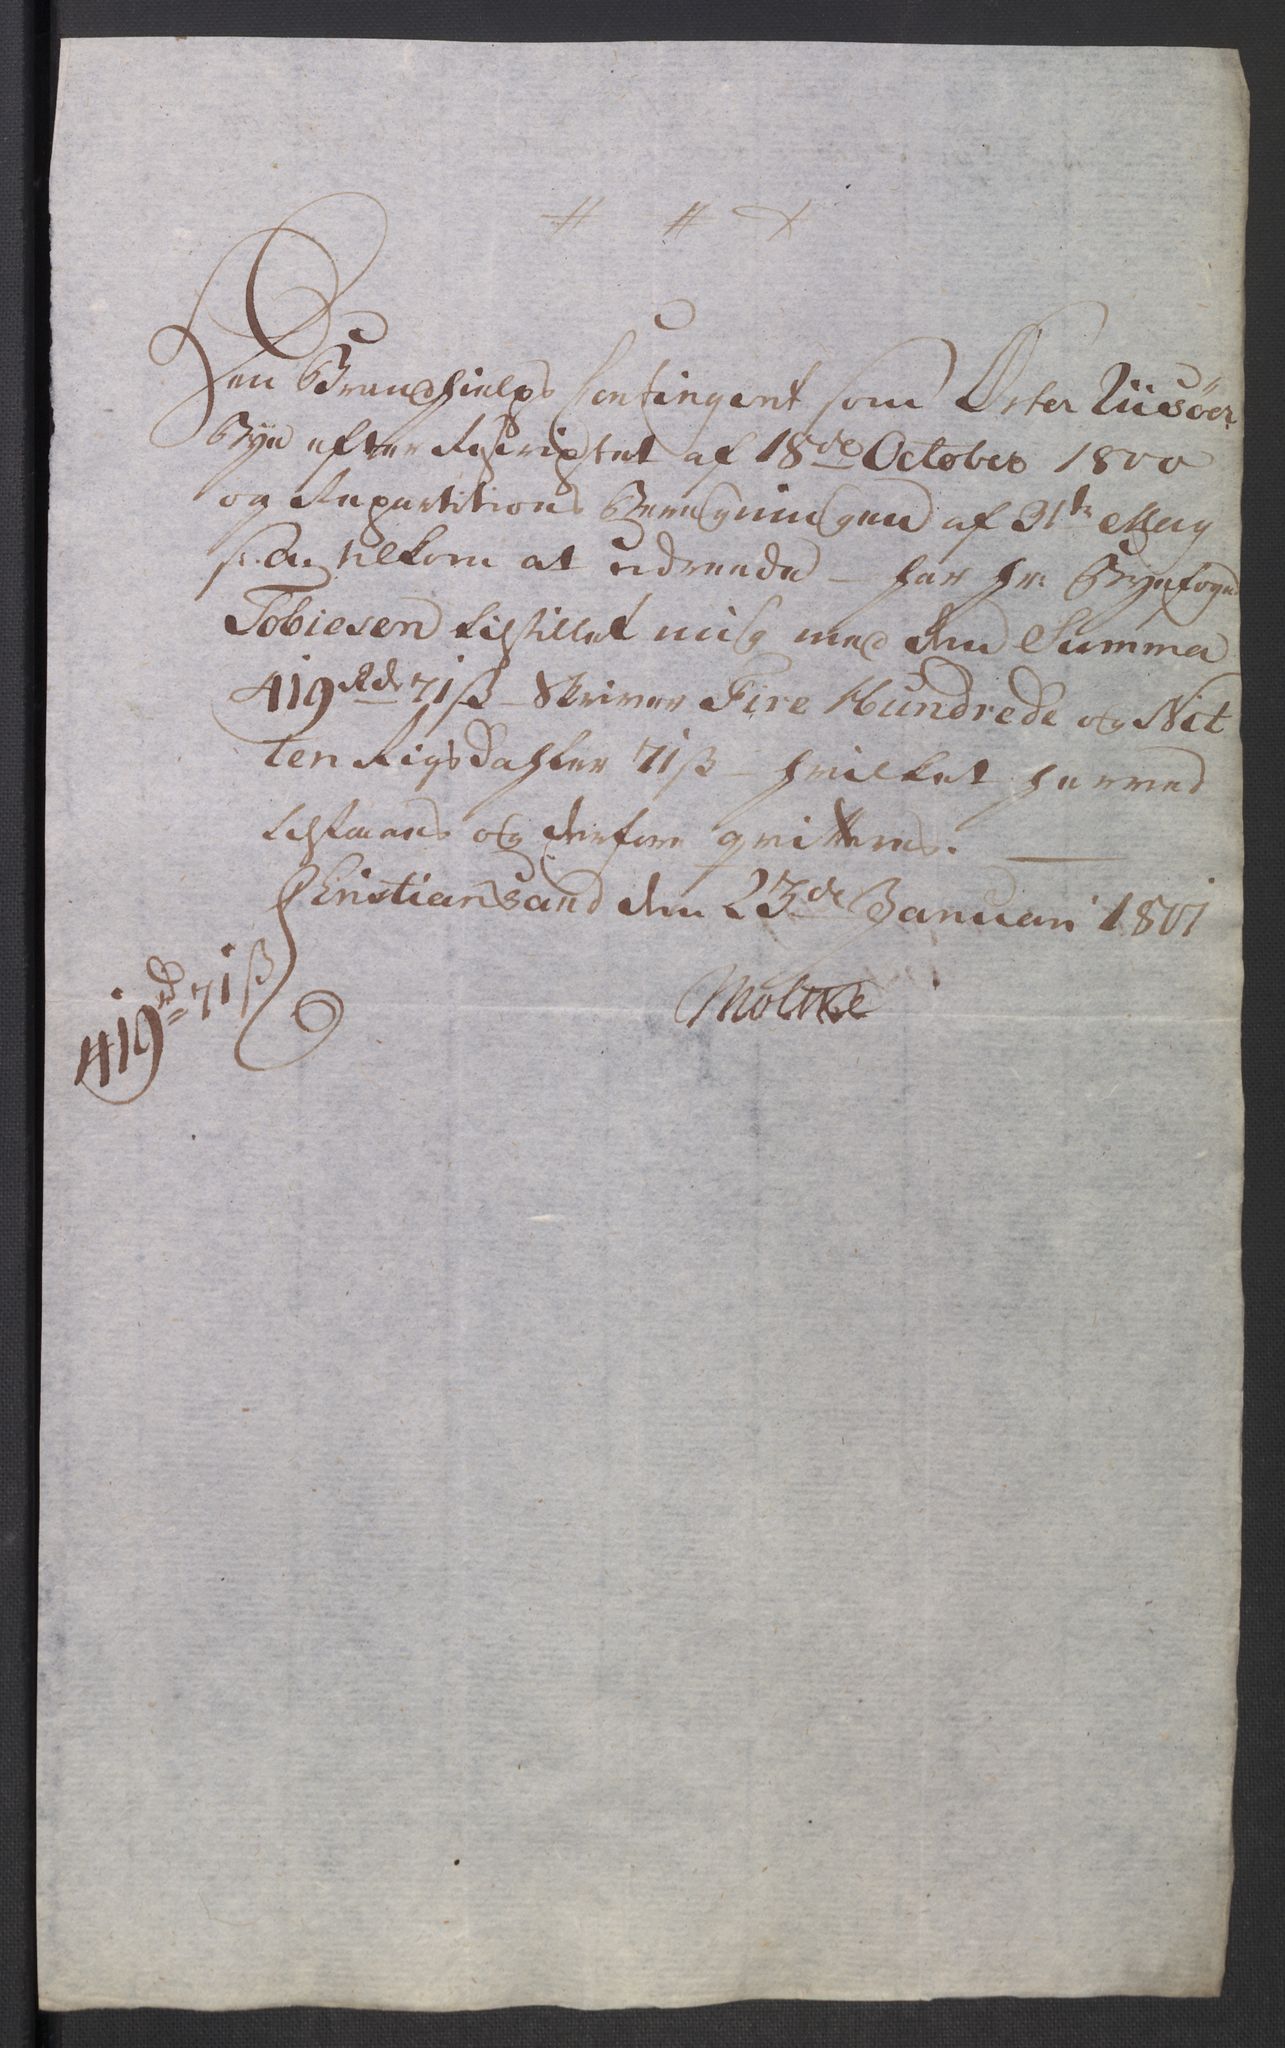 Den Brandhielps Contingent som Øster Riisöer
Bye efter Rescriptet af 18de October 1800
og Repartitions Beregningen af 31te May
s: a: tilkom at udreede – har Hr: Byefoged
Tobiesen tilstillet mig med den Summa
419 Rdr 71 ß – Skriver Fire Hundrede og Nit
ten Rigsdahler 71 ß – hvilket herved
tilstaaes og derfore qvitteres.
Christiansand den 23de Januari 1801
419 rd 71 ß
Moltke